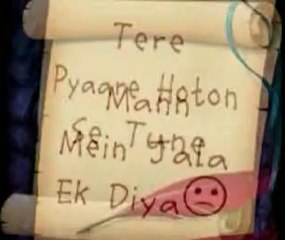 Tere
Pyaare Hoton
Mann
Se Tune
Mein Jala
Ek Diya